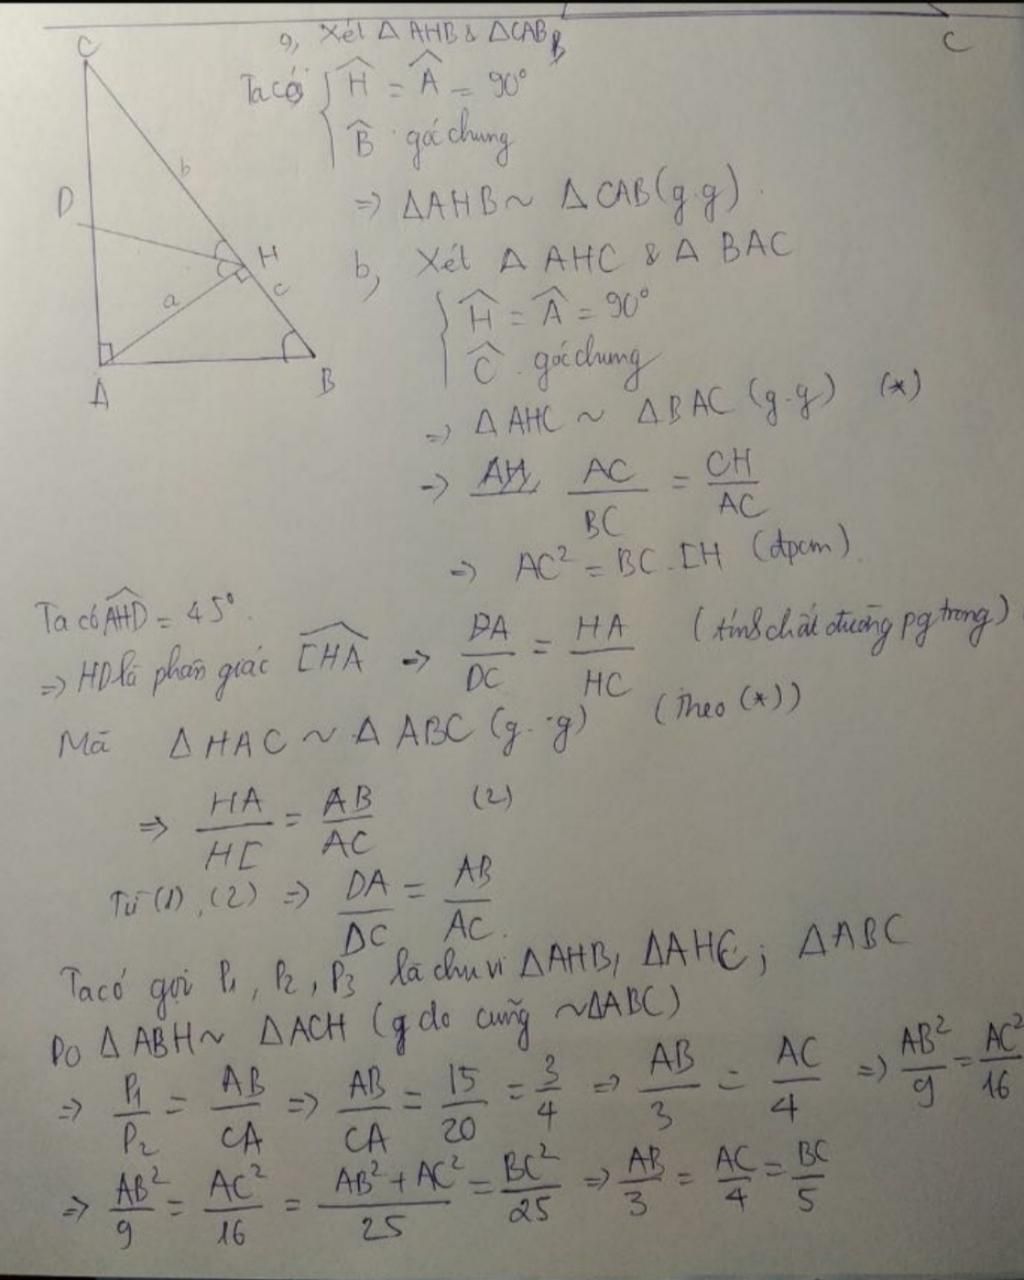 C
a, Xét Δ AHB & ΔCAB
B
C
Ta có { Ĥ = Â = 90°
B̂ góc chung
D
b
=> ΔAHB ~ ΔCAB (g.g).
H
c
a
b, Xét Δ AHC & Δ BAC
{ Ĥ = Â = 90°
Ĉ . góc chung
A
B
=> Δ AHC ~ ΔBAC (g.g) (*)
=> AC/BC = CH/AC
=> AC² = BC . CH (đpcm).
Ta có AHD = 45°.
=> HD là phân giác CHA => DA/DC = HA/HC (tính chất đường pg trong)
Mà Δ HAC ~ Δ ABC (g.g) (theo (*))
=> HA/HC = AB/AC (2)
Từ (1), (2) => DA/DC = AB/AC.
Ta có gọi P₁, P₂, P₃ là chu vi ΔAHB, ΔAHC; ΔABC
Do Δ ABH ~ ΔACH (g do cũng ~ΔABC)
=> P₁/P₂ = AB/CA => AB/CA = 15/20 = 3/4 => AB/3 = AC/4 => AB²/9 = AC²/16
=> AB²/9 = AC²/16 = AB² + AC²/25 = BC²/25 => AB/3 = AC/4 = BC/5